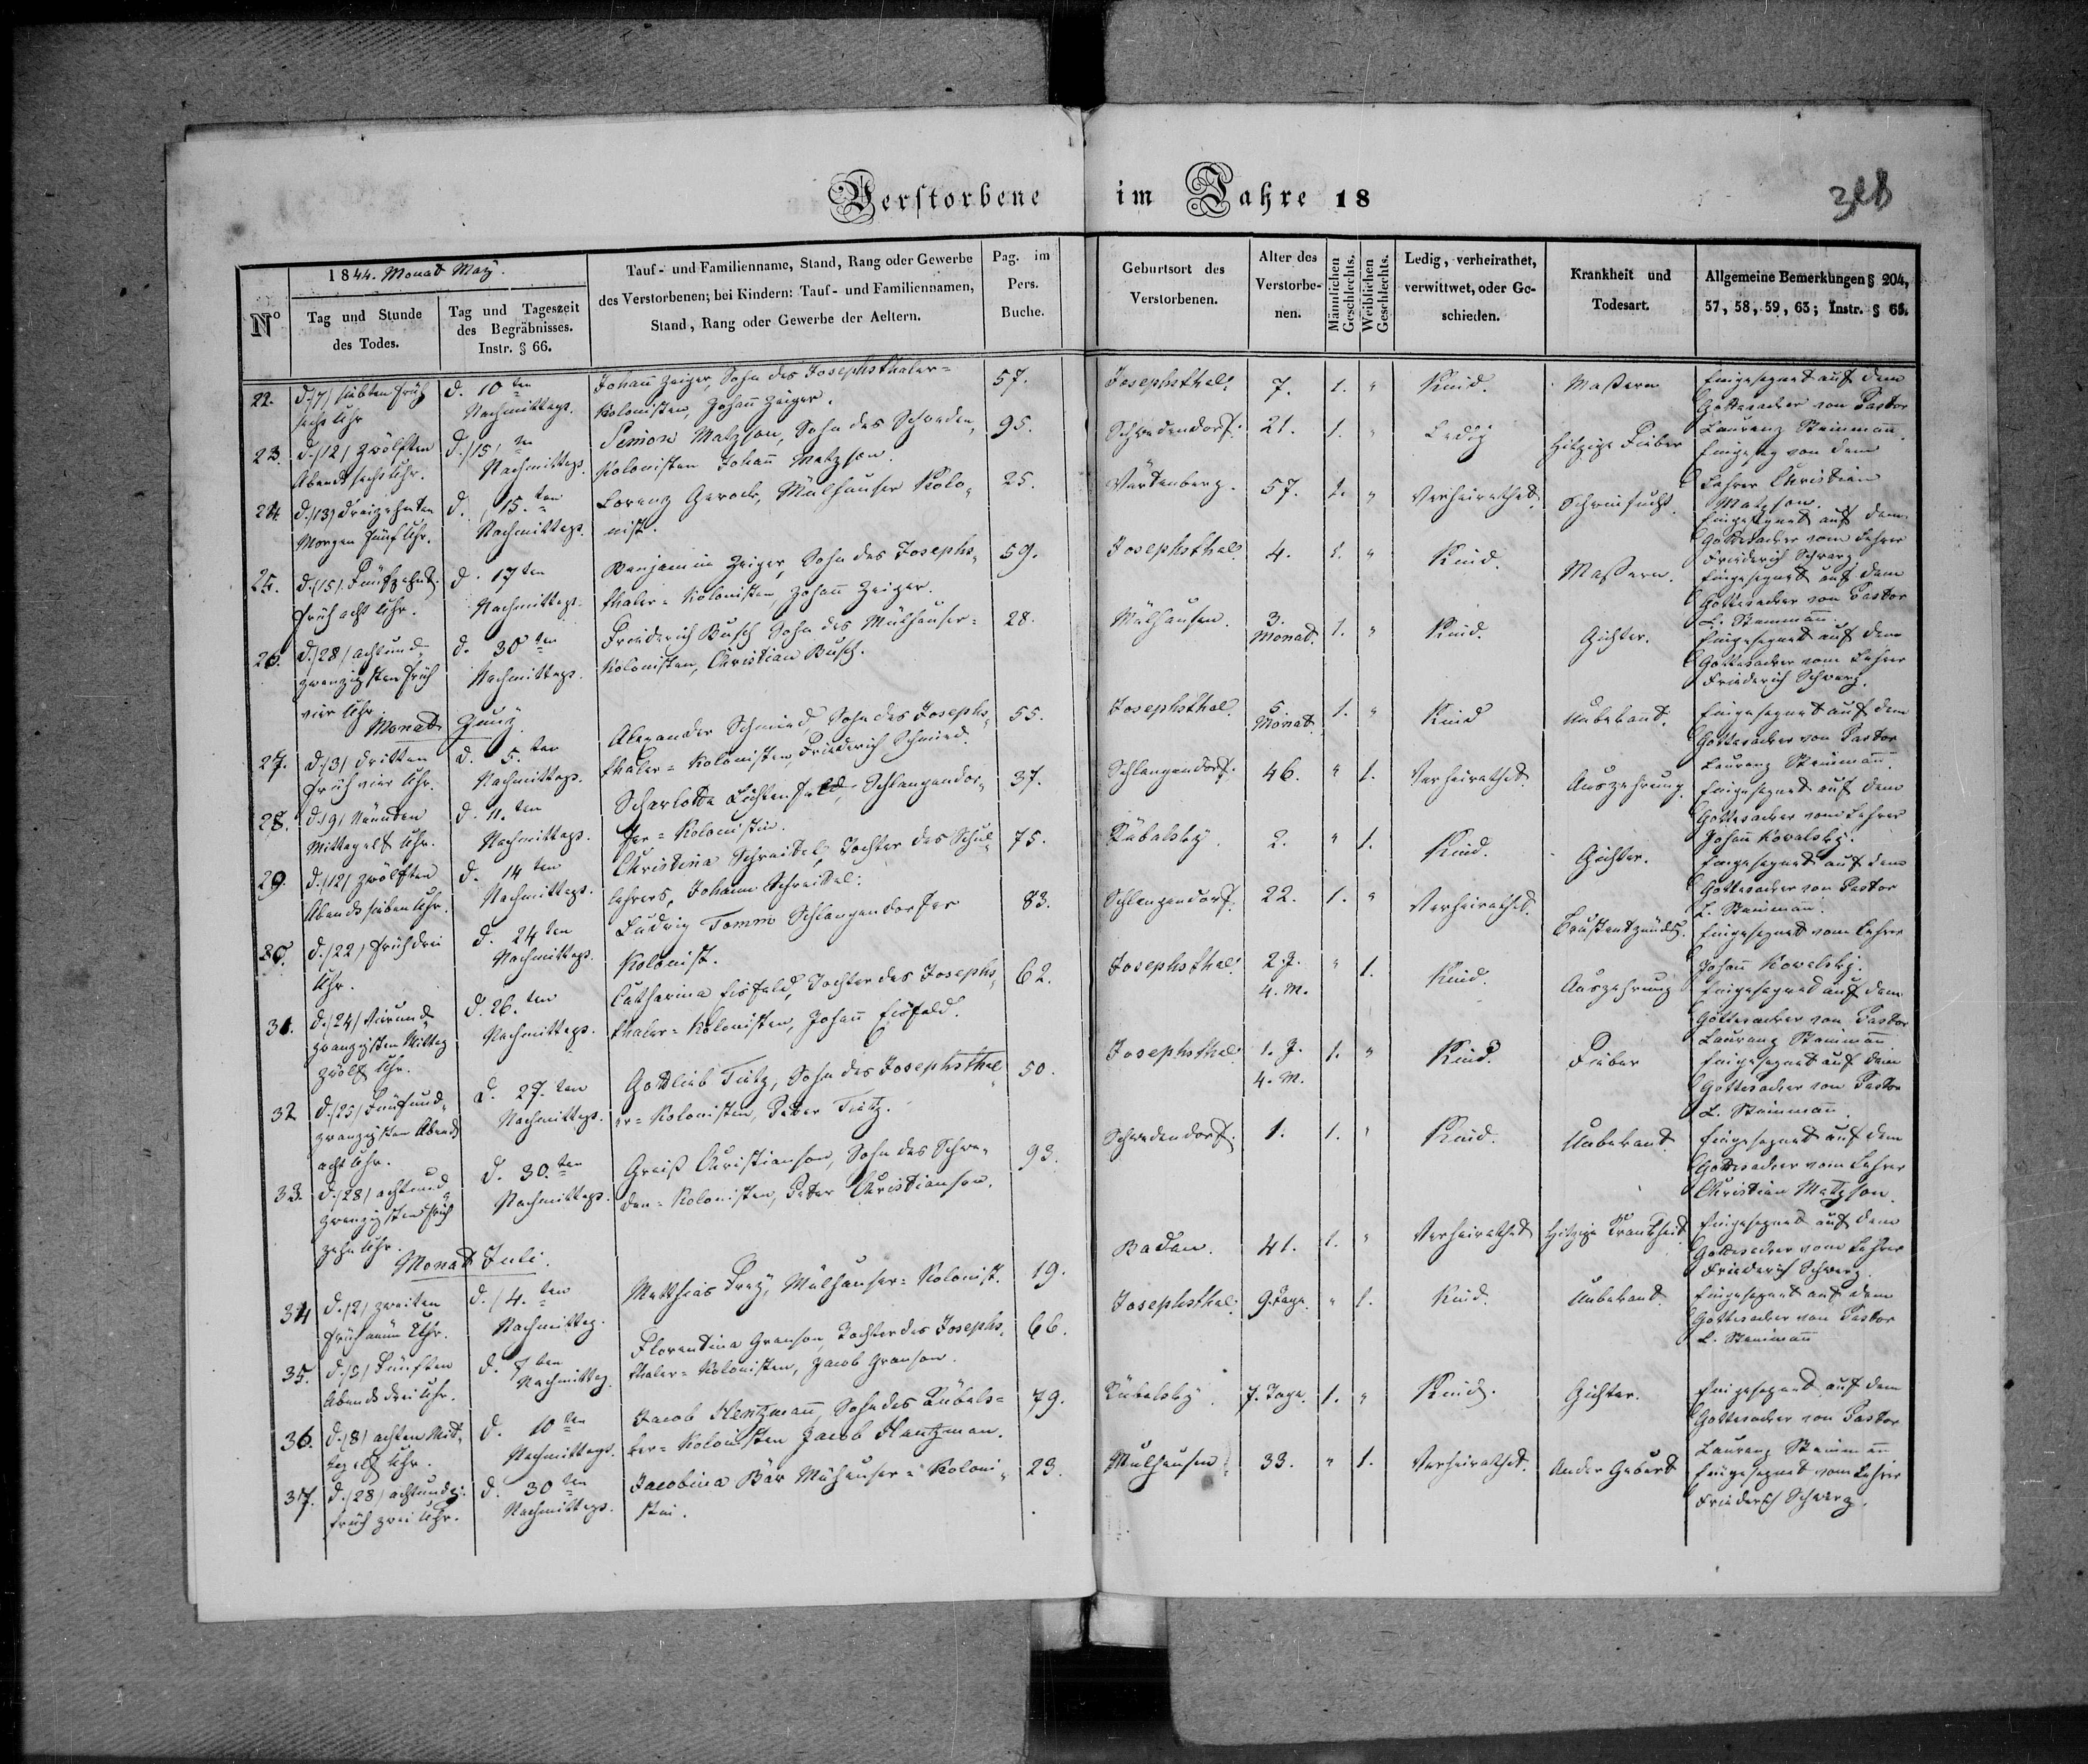 Verstorbene im Jahre 18
1844. Monat May.
N° Tag und Stunde des Todes. Tag und Tageszeit des Begräbnisses. Instr. § 66.
Tauf- und Familienname, Stand, Rang oder Gewerbe des Verstorbenen; bei Kindern: Tauf- und Familiennamen, Stand, Rang oder Gewerbe der Aeltern.
Pag. im Pers. Buche.
Geburtsort des Verstorbenen.
Alter des Verstorbenen.
Männlichen Geschlechts.
Weiblichen Geschlechts.
Ledig, verheirathet, verwittwet, oder Geschieden.
Krankheit und Todesart.
Allgemeine Bemerkungen § 204, 57, 58, 59, 65; Instr. § 66.
22. d. (7) siebten früh sechs Uhr d. 10ten Nachmittags. Johañ Zeiger, Sohn des Josephsthaler= Kolonisten, Johañ Zeiger. 57. Josephsthal. 7. 1. " Kind. Maßern Eingesegnet auf dem Gottesacker von Pastor Laurenz Steinmañ.
23. d. (12) zwölften Abends sechs Uhr. d. (15)ten Nachmittags. Simon Matzson, Sohn des Schweden, Kolonisten Johañ Matzson. 95. Schwedendorf. 21. 1. " Ledig Hitzige Fieber Eingeseg von dem Lehrer Christian Matzson.
24. d. (13) dreizehnten Morgen fünf Uhr. d. 15.ten Nachmittags. Lorenz Gerock, Mülhauser Kolonist. 25. Würtenberg. 57. 1. " Verheirathet. Schwinsucht. Eingesegnet auf dem Gottesacker vom Lehrer Friederich Schwarz.
25. d. (15) Fünfzehnt. früh acht Uhr. d. 17ten Nachmittags. Benjamin Zeiger, Sohn des Josephsthaler= Kolonisten Johañ Zeiger. 59. Josephsthal. 4. 1. " Kind. Maßern. Eingesegnet auf dem Gottesacker von Pastor L. Steinmañ.
26. d. (28) achtundzwanzigsten früh vier Uhr. d. 30ten Nachmittags. Friederich Busch Sohn des Mülhauser= Kolonisten, Christian Busch. 28. Mülhausen. 3. Monat. 1. " Kind. Gichter. Eingesegnet auf dem Gottesacker vom Lehrer Friederich Schwarz.
Monat Juny.
27. d. (3) dritten früh vier Uhr. d. 5.ten Nachmittags. Alexander Schmied, Sohn des Josephsthaler= Kolonisten, Friederich Schmied. 55. Josephsthal. 5. Monat. 1. " Kind Unbekant. Eingesegnet auf dem Gottesacker von Pastor Laurenz Steinmañ.
28. d. (9) Neunten Mittag elf Uhr. d. 11.ten Nachmittags. Scharlotta Lichtenfeld, Schlangendorfer= Kolonistin. 37. Schlangendorf. 46. " 1. Verheirathet. Auszehrung. Eingesegnet auf dem Gottesacker vom Lehrer Johañ Kovalsky.
29. d. (12) zwölften Abends sieben Uhr. d. 14ten Nachmittags. Christina Schreidel, Tochter des Schullehrers, Johann Schreidel. 75. Kübalsky. 2. " 1. Kind. Gichter. Eingesegnet auf dem Gottesacker von Pastor L. Steinmañ.
30. d. (22) früh drei Uhr. d. 24ten Nachmittags. Ludwig Tomm Schlangendorfer Kolonist. 83. Schlangendorf. 22. 1. " Verheirathet. Brustentzündg. Eingesegnet vom Lehrer Johañ Kovelsky.
31. d. (24) Vierundzwanzigsten Mittag zwölf Uhr. d. 26.ten Nachmittags. Catharina Eisfeld, Tochter des Josephsthaler= Kolonisten, Johañ Eisfeld. 62. Josephsthal. 2. J. 4. M. " 1. Kind. Auszehrung Eingesegnet auf dem Gottesacker von Pastor Laurenz Steinmañ
32. d. (25) Fünfundzwanzigsten Abends acht Uhr. d. 27.ten Nachmittags. Gottlieb Tietz, Sohn des Josephsthaler= Kolonisten, Peter Tietz. 50. Josephsthal. 1. J. 4. M. 1. " Kind. Fieber Eingesegnet auf dem Gottesacker von Pastor L. Steinmañ.
33. d. (28) achtundzwanzigsten früh zehn Uhr. d. 30.ten Nachmittags. Greiß Christianson, Sohn des Schweden= Kolonisten, Peter Christianson. 93. Schwedendorf. 1. 1. " Kind. Unbekant. Eingesegnet auf dem Gottesacker vom Lehrer Christian Matzson.
Monat Juli.
34. d. (2) zweiten früh neun Uhr. d. (4.ten Nachmittag. Matthias Frey, Mülhauser= Kolonist. 19. Baden. 41. 1. " Verheirathet Hitzige Krankheit Eingesegnet auf dem Gottesacker vom Lehrer Friederich Schwarz.
35. d. (5) Fünften Abends drei Uhr. d. 7ben Nachmittag. Florentina Granson, Tochter des Josephsthaler= Kolonisten, Jacob Granson. 66. Josephsthal. 9. Tage. " 1. Kind. Unbekant. Eingesegnet auf dem Gottesacker von Pastor L. Steinmañ
36. d. (8) achten Mittag elf Uhr. d. 10ten Nachmittags. Jacob Hentzmañ, Sohn des Kübalsker= Kolonisten Jacob Hentzman. 79. Kübalsky. 7. Tage. 1. " Kind. Gichter. Eingesegnet auf dem Gottesacker von Pastor Laurenz Steinmañ
37. d. (28) achtundz: früh zwei Uhr. d. 30ten Nachmittags. Jacobina Bär Mülhauser= Kolonistin. 23. Mülhausen. 33. " 1. Verheirathet. An der Geburt Eingesegnet vom Lehrer Friederich Schwarz.